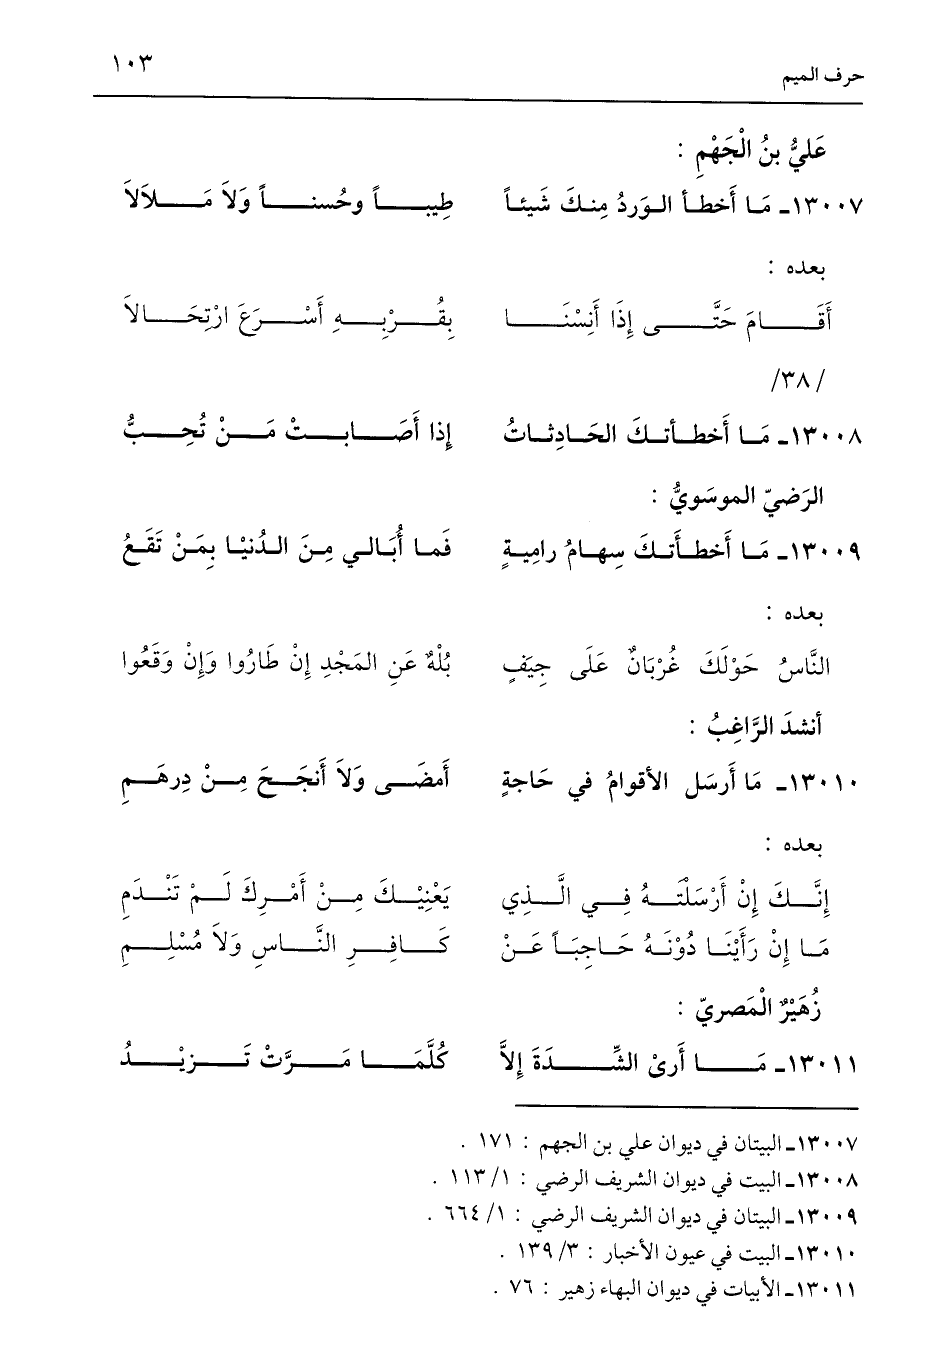 حرف الميم ١٠٣
عَليُّ بنُ الْجَهْمِ :
١٣٠٠٧ـ مَا أَخطأ الوَردُ مِنكَ شَيئاً طِيباً وحُسناً وَلاَ مَلالَاَ
بعده :
أَقَامَ حَتَّى إِذَا أَنِسْنَا بِقُرْبِهِ أَسْرَعَ ارْتِحَالاَ
/٣٨/
١٣٠٠٨ـ مَا أَخطأتكَ الحَادِثاتُ إِذا أَصَابتْ مَنْ تُحِبُّ
الرَضيّ الموسَويُّ :
١٣٠٠٩ـ مَا أَخطأَتكَ سِهامُ رامِيةٍ فَما أُبَالي مِنَ الدُنيْا بِمَنْ تَقَعُ
بعده :
النَّاسُ حَوْلَكَ غُرْبَانٌ عَلَى جِيَفٍ بُلْهٌ عَنِ المَجْدِ إِنْ طَارُوا وَإِنْ وَقَعُوا
أنشدَ الرَّاغِبُ :
١٣٠١٠ـ مَا أَرسَل الأقوامُ في حَاجةٍ أَمضَى وَلاَ أَنجَحَ مِنْ دِرهَمِ
بعده :
إِنَّكَ إِنْ أَرْسَلْتَهُ فِي الَّذِي يَعْنِيْكَ مِنْ أَمْرِكَ لَمْ تَنْدَمِ
مَا إِنْ رَأَيْنَا دُوْنَهُ حَاجِبَاً عَنْ كَافِرِ النَّاسِ وَلاَ مُسْلِمِ
زُهَيْرٌ الْمَصريّ :
١٣٠١١ـ مَا أَرىْ الشِّدَةَ إِلاَّ كُلَّمَا مَرَّتْ تَزيْدُ
١٣٠٠٧ـ البيتان في ديوان علي بن الجهم : ١٧١ .
١٣٠٠٨ـ البيت في ديوان الشريف الرضي : ١/ ١١٣ .
١٣٠٠٩ـ البيتان في ديوان الشريف الرضي : ١/ ٦٦٤ .
١٣٠١٠ـ البيت في عيون الأخبار : ٣/ ١٣٩ .
١٣٠١١ـ الأبيات في ديوان البهاء زهير : ٧٦ .